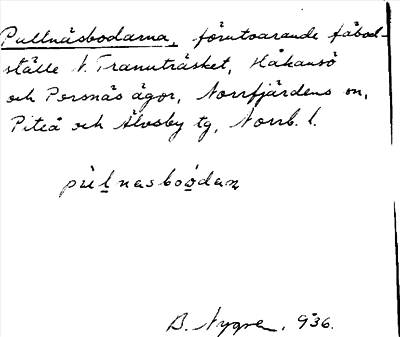 Pullnäsbodarna, förutvarande fäbod-
ställe N. Trannträsket, Håkansö
och Porsnäs ägor, Norrfjärdens sn,
Piteå och Älvsby tg, Norrb. l.
pùl̲nasboo̲dan
B. Nygren, 936.